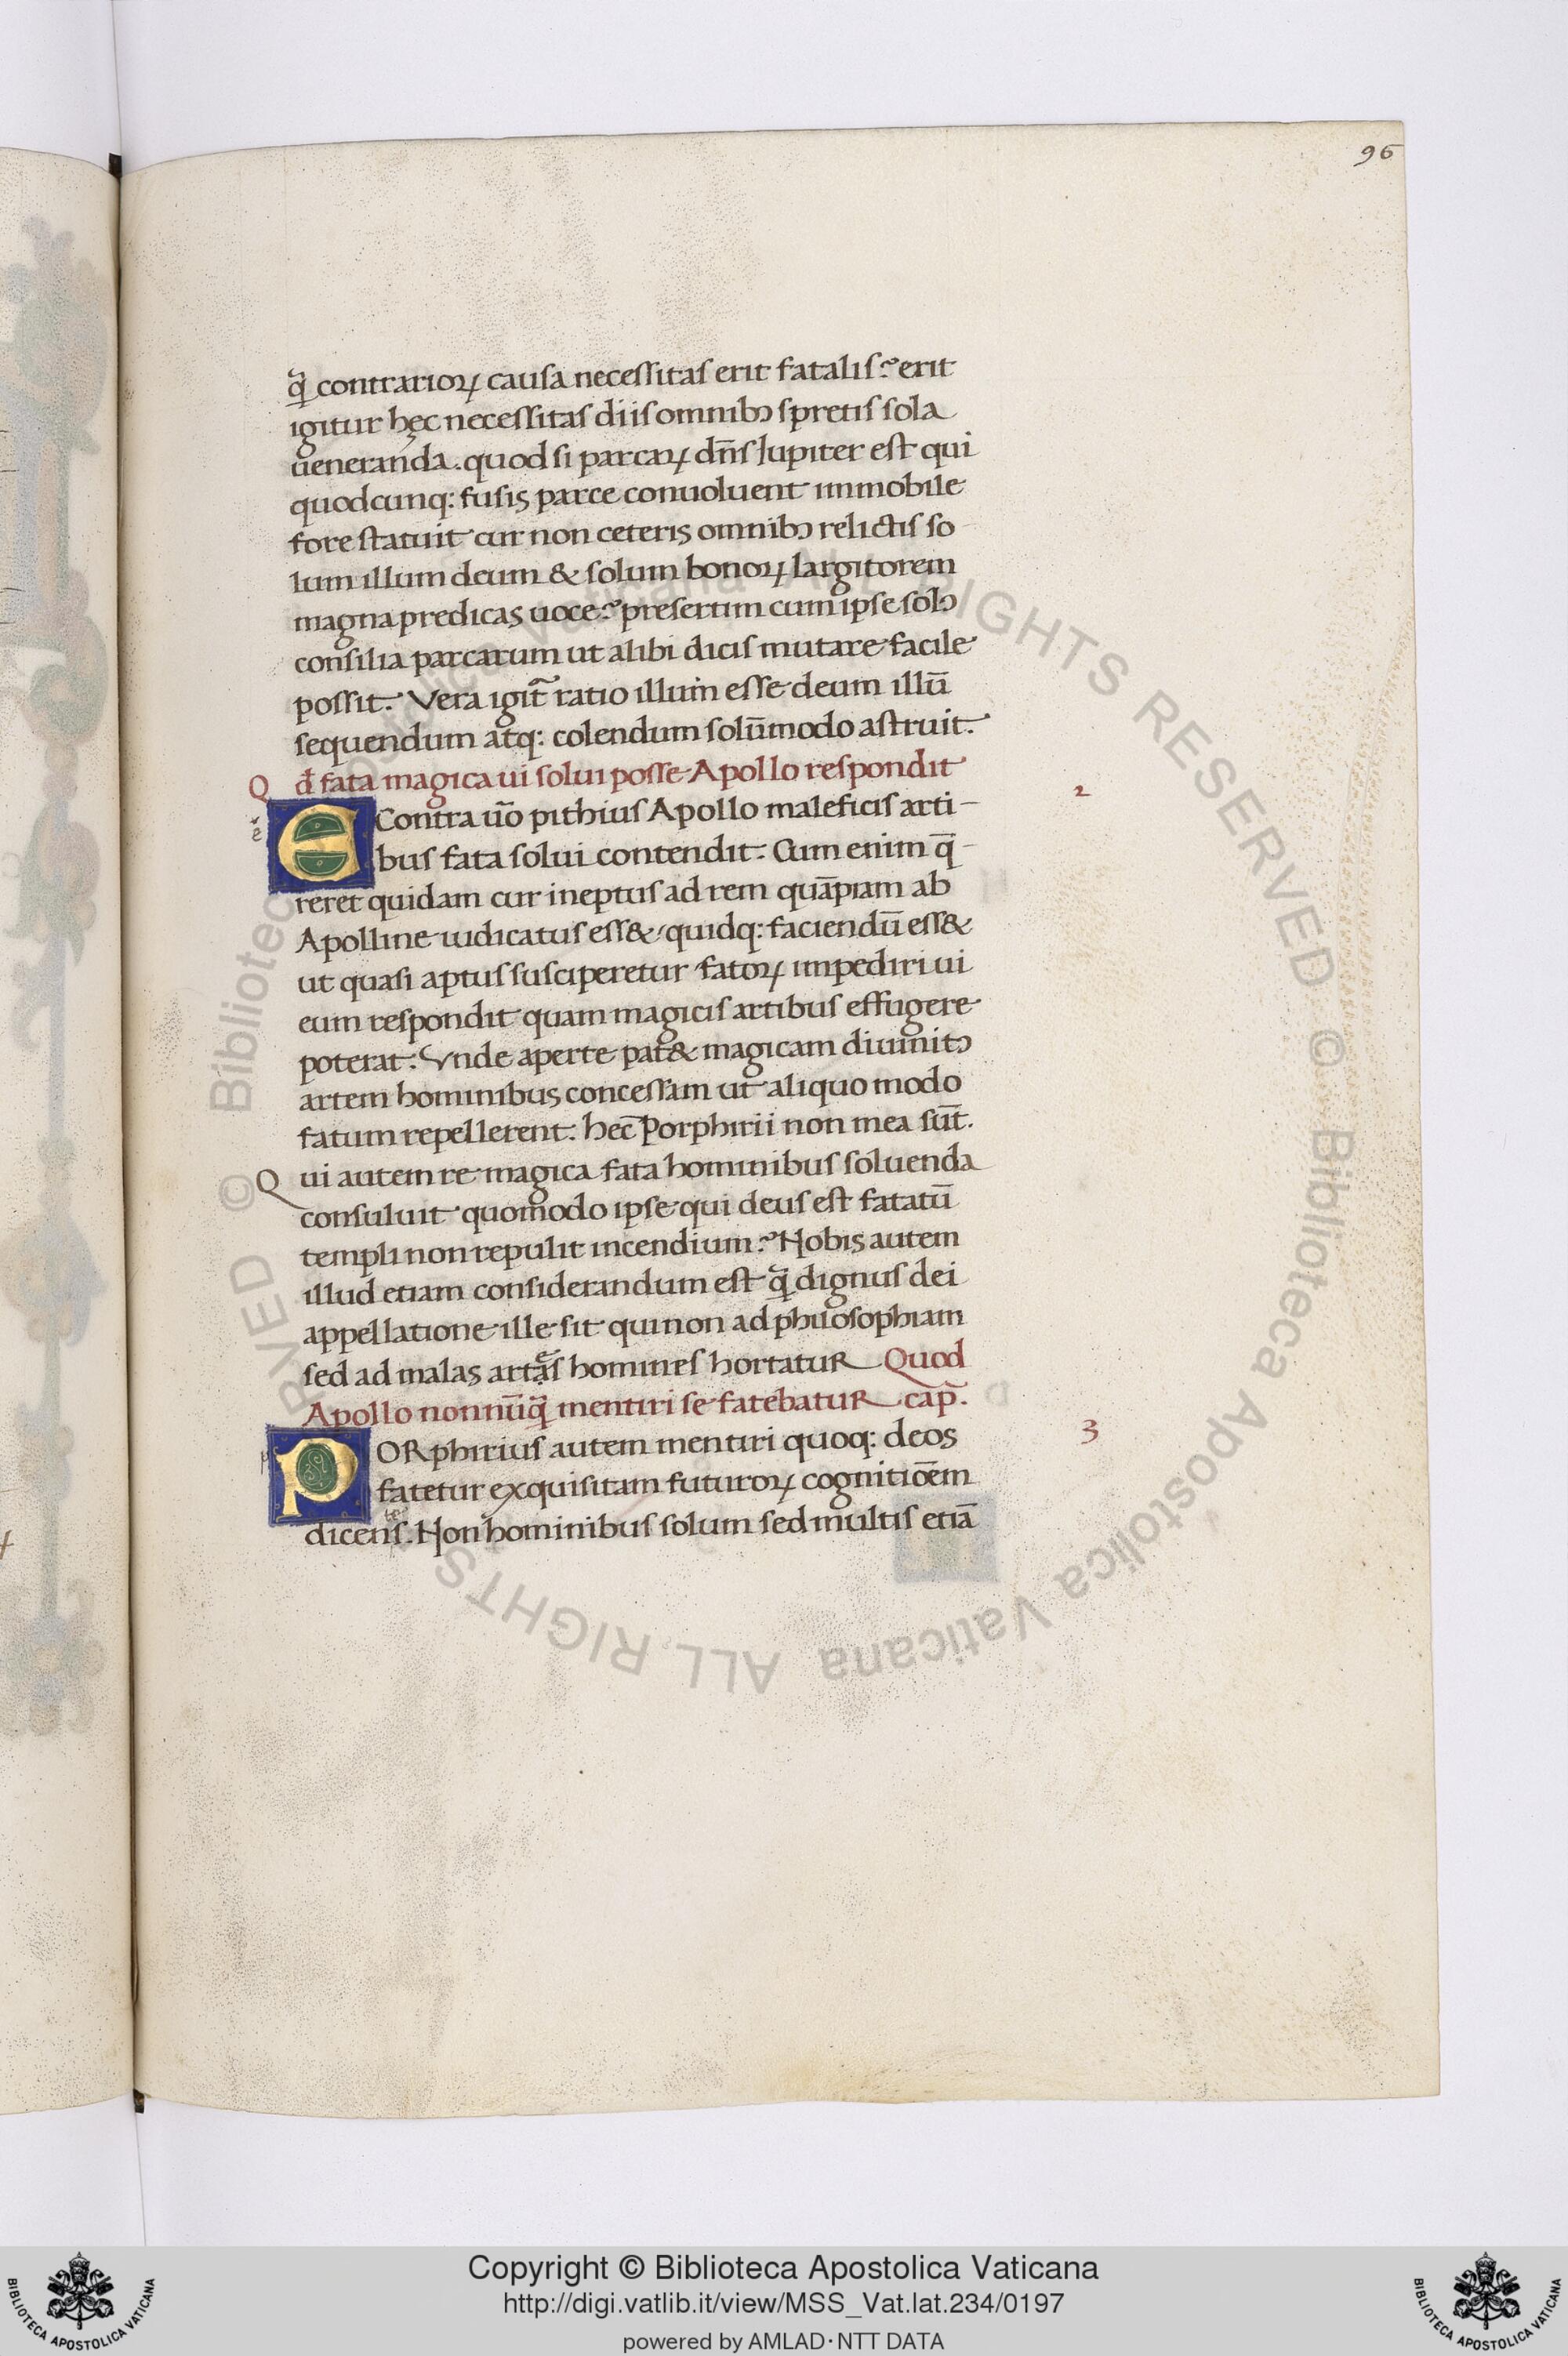 96
qͣ contrarioꝝ causa necessitas erit fatalis? erit
igitur hęc necessitas diis omnibꝯ spretis sola
ueneranda. quod si parcaꝝ dn̄s Iupiter est qui
quodcunq: fusis parce conuoluent immobile
fore statuit cur non ceteris omnibꝯ relictis so
lum illum deum & solum bonoꝝ largitorem
magna predicas uoce? presertim cum ipse solꝯ
consilia parcarum ut alibi dicis mutare facile
possit. Vera igit̃ ratio illum esse deum illū
sequendum atq: colendum solūmodo astruit.
Qđ fata magica ui solui posse Apollo respondit 2
E Contra ūo pithius Apollo maleficis arti-
bus fata solui contendit. Cum enim q̄-
reret quidam cur ineptus ad rem quāpiam ab
Apolline iudicatus ess& quidq: faciendū ess&
ut quasi aptus susciperetur fatoꝝ impediri ui
eum respondit quam magicis artibus effugere
poterat. Vnde aperte pat& magicam diuinitꝯ
artem hominibus concessam ut aliquo modo
fatum repellerent. hec̄ Porphirii non mea sūt.
Qui autem re magica fata hominibus soluenda
consuluit quomodo ipse qui deus est fatatū
templi non repulit incendium? Nobis autem
illud etiam considerandum est qͣ dignus dei
appellatione ille sit qui non ad philosophiam
sed ad malas artẹs homines hortatur Quod
Apollo nonnūqͣ mentiri se fatebatur cap̃. 3
PORphirius autem mentiri quoq: deos
fatetur exquisitam futuroꝝ cognitiōem
dicens. Non hominibus solum sed multis etiā
© Biblioteca Apostolica Vaticana ALL RIGHTS RESERVED © Biblioteca Apostolica Vaticana ALL RIGHTS RESERVED
Copyright © Biblioteca Apostolica Vaticana
http://digi.vatlib.it/view/MSS_Vat.lat.234/0197
powered by AMLAD·NTT DATA
BIBLIOTECA APOSTOLICA VATICANA
BIBLIOTECA APOSTOLICA VATICANA